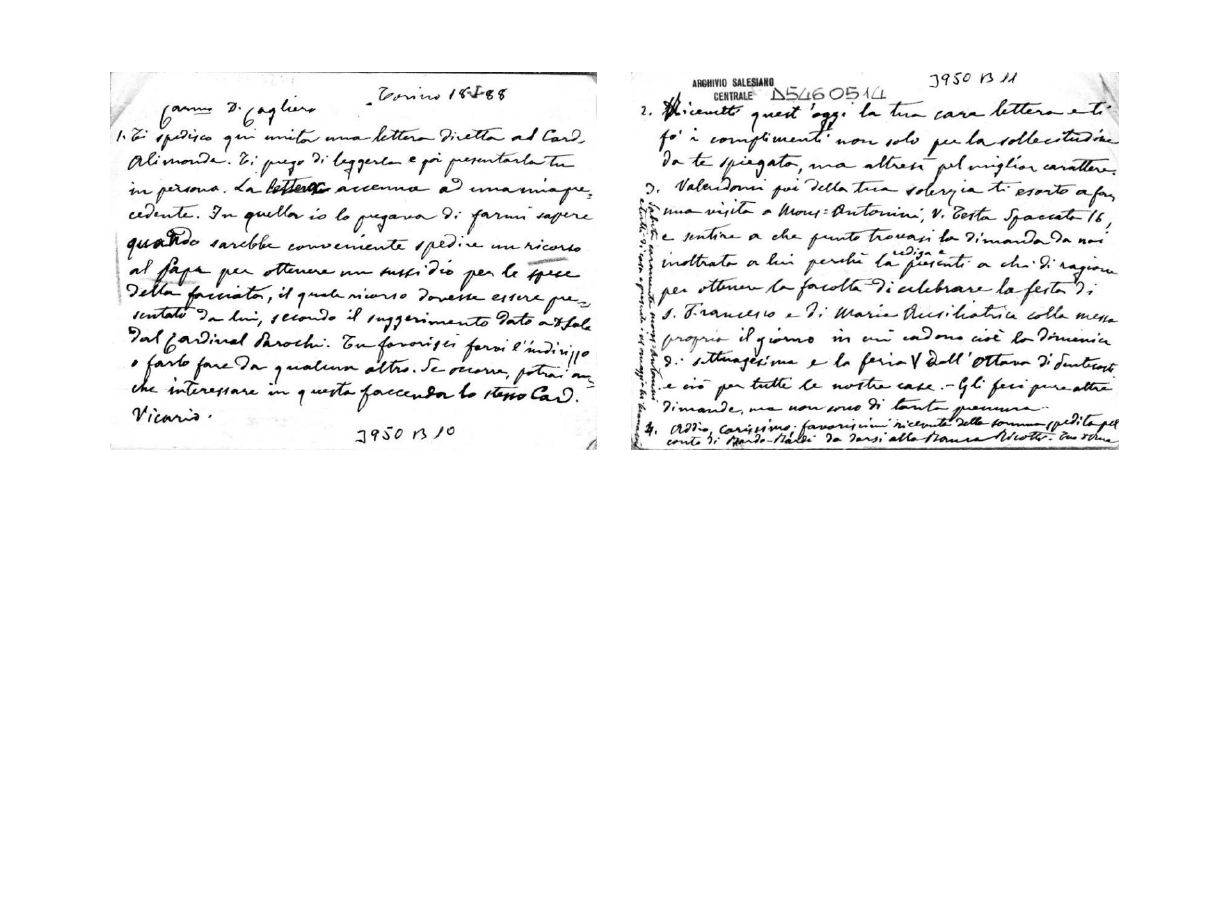 Torino 18-5-88
Carmo D. Cagliero
1. Ti spedisco qui unita una lettera diretta al Card.
Alimonda. Ti prego di leggerla e poi presentarla tu
in persona. La lettera accenna ad una mia pre=
cedente. In quella io lo pregava di farmi sapere
quando sarebbe conveniente spedire un ricorso
al Papa per ottenere un sussidio per le spese
della facciata, il quale ricorso dovesse essere pre=
sentato da lui, secondo il suggerimento dato
dal Cardinal Parochi. Tu favorisci farvi l'indirizzo
o farlo fare da qualcun altro. Se occorre, potrai an=
che interessare in questa faccenda lo stesso Card.
Vicario.
3950 B 10
ARCHIVIO SALESIANO
CENTRALE
D5460514
3950 B 11
2. Ricevetti quest'oggi la tua cara lettera e ti
fo' i complimenti non solo per la sollecitudine
da te spiegata, ma altresì pel miglior carattere.
3. Valendomi poi della tua solerzia ti esorto a far
una visita a Mons: Antonini, V. Testa Spaccata 16,
e sentire a che punto trovasi la dimanda da noi
inoltrata a lui perchè la rediga e presenti a chi di ragione
per ottenere la facoltà di celebrare la festa di
S. Francesco e di Maria Ausiliatrice colla messa
propria il giorno in cui cadono cioè la domenica
di settuagesima e la feria V dell'Ottava di Pentecoste
e ciò per tutte le nostre case. - Gli feci pure altre
dimande, ma non sono di tanta premura.
4. Addio, carissimo: favoriscimi ricevuta della somma spedita pel
conto di da darsi alla
Saluta caramente mons: Antonini